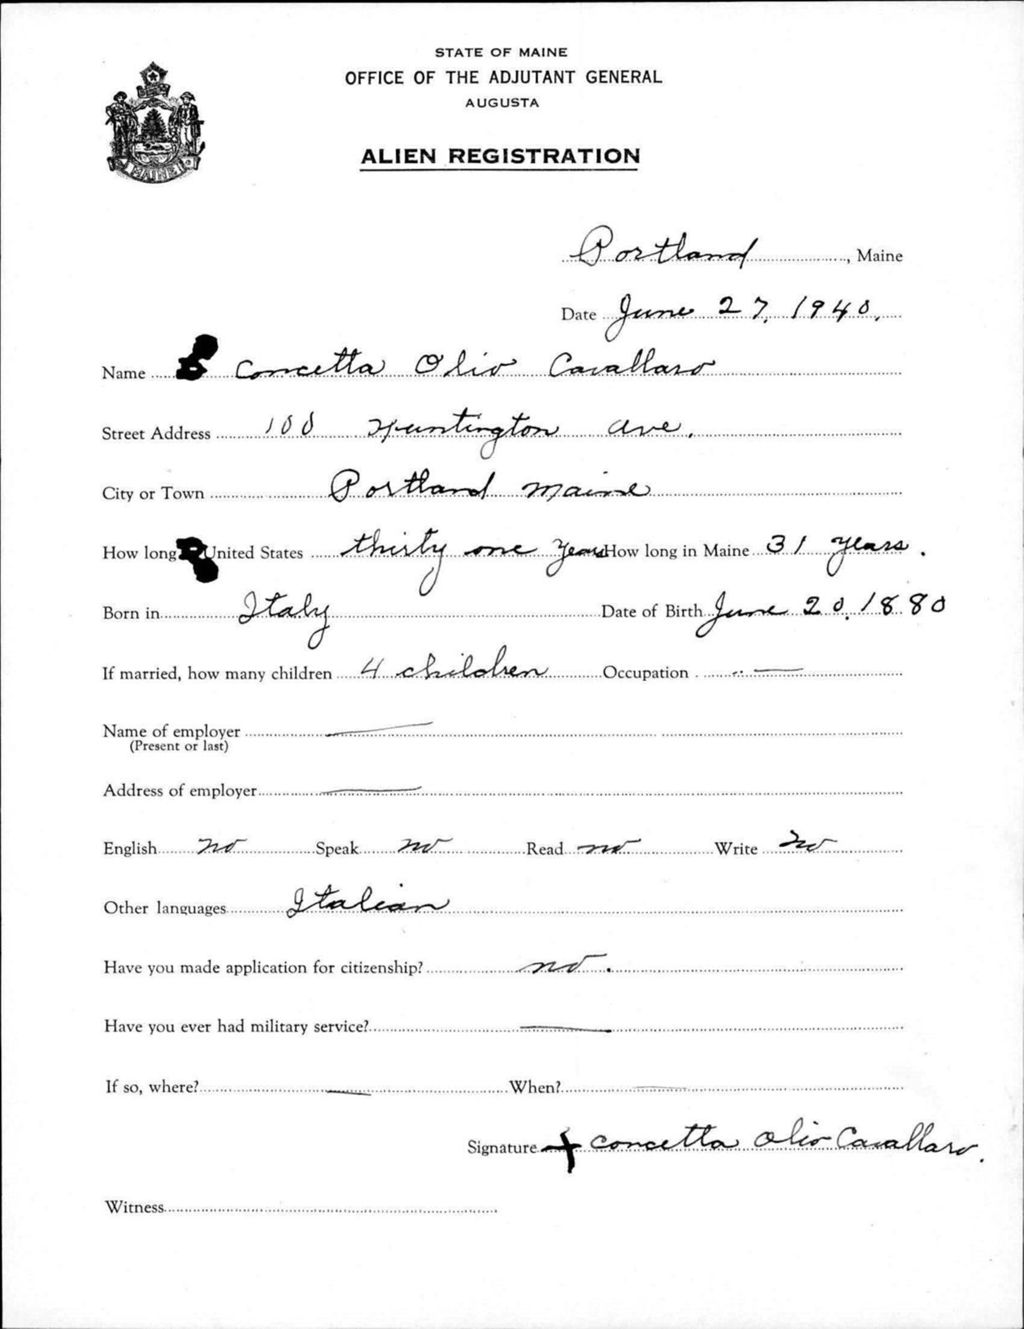 STATE OF MAINE
OFFICE OF THE ADJUTANT GENERAL
AUGUSTA
ALIEN REGISTRATION
MAINE
Portland, Maine
Date June 27, 1940.
Name Concetta Olio Cavallaro
Street Address 100 Huntington Ave.
City or Town Portland Maine
How long United States thirty one years How long in Maine 31 years.
Born in Italy Date of Birth June 20, 1880
If married, how many children 4 children Occupation —
Name of employer —
(Present or last)
Address of employer —
English no Speak no Read no Write no
Other languages Italian
Have you made application for citizenship? no.
Have you ever had military service? —
If so, where? — When? —
Signature + Concetta Olio Cavallaro.
Witness